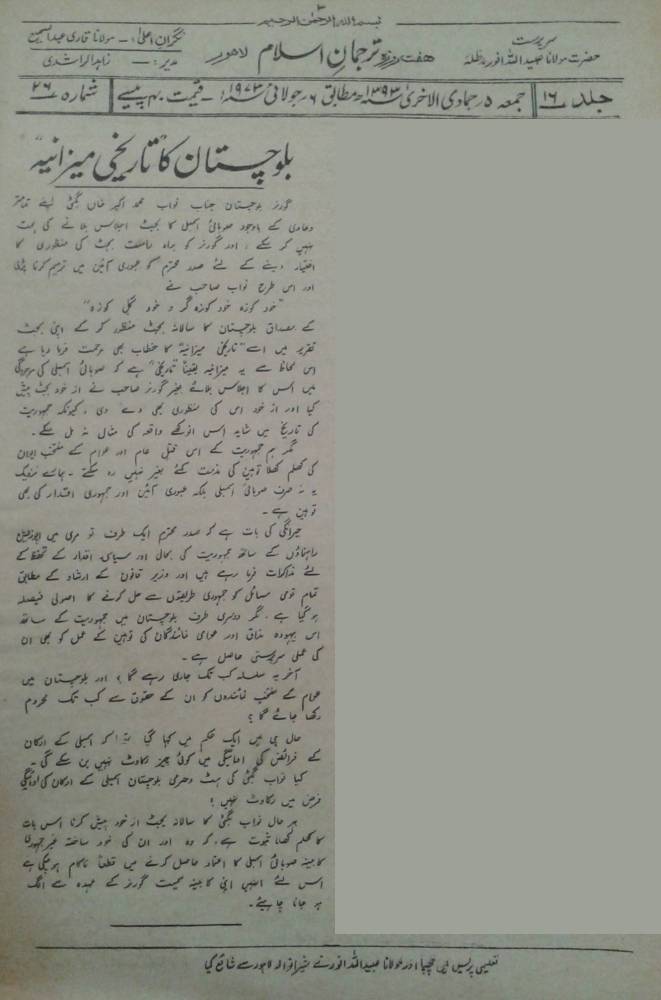 ۳
بسم اللہ الرحمٰن الرحیم
سرپرست
حضرت مولانا عبید اللہ انور مدظلہ
ہفت روزہ ترجمان اسلام لاہور
نگران اعلیٰ :۔ مولانا قاری عبدالسمیع
مدیر :۔ زاہد الراشدی
جلد ۱۶ جمعہ ۵؍ جمادی الاخریٰ ۱۳۹۳ھ مطابق ۶؍ جولائی ۱۹۷۳ء ۔ قیمت ۴۰ پیسے شمارہ ۲۶
بلوچستان کا "تاریخی میزانیہ"
گورنر بلوچستان جناب نواب محمد اکبر خاں بگٹی اپنے تمامتر
دعاوی کے باوجود صوبائی اسمبلی کا بجٹ اجلاس بلانے کی ہمت
نہیں کر سکے ، اور گورنر کو براہ راست بجٹ کی منظوری کا
اختیار دینے کے لئے صدر محترم کو عبوری آئین میں ترمیم کرنا پڑی
اور اس طرح نواب صاحب نے
"خود کوزہ خود کوزہ گر و خود گل کوزہ"
کے مصداق بلوچستان کا سالانہ بجٹ منظور کر کے اپنی بجٹ
تقریر میں اسے "تاریخی میزانیہ" کا خطاب بھی مرحمت فرما دیا ہے
اس لحاظ سے یہ میزانیہ یقیناً "تاریخی" ہے کہ صوبائی اسمبلی کی موجودگی
میں اس کا اجلاس بلائے بغیر گورنر صاحب نے از خود بجٹ پیش
کیا اور از خود اس کی منظوری بھی دے دی ، کیونکہ جمہوریت
کی تاریخ میں شاید اس انوکھے واقعہ کی مثال نہ مل سکے ۔
مگر ہم جمہوریت کے اس قتل عام اور عوام کے منتخب ایوان
کی کھلم کھلا توہین کی مذمت کئے بغیر نہیں رہ سکتے ۔ ہمارے نزدیک
یہ نہ صرف صوبائی اسمبلی بلکہ عبوری آئین اور جمہوری اقتدار کی بھی
توہین ہے ۔
حیرانگی کی بات ہے کہ صدر محترم ایک طرف تو مری میں اپوزیشن
راہنماؤں کے ساتھ جمہوریت کی بحالی اور سیاسی اقدار کے تحفظ کے
لئے مذاکرات فرما رہے ہیں اور وزیر قانون کے ارشاد کے مطابق
تمام قومی مسائل کو جمہوری طریقوں سے حل کرنے کا اصولی فیصلہ
ہو گیا ہے ، مگر دوسری طرف بلوچستان میں جمہوریت کے ساتھ
اس بیہودہ مذاق اور عوامی نمائندگان کی توہین کے عمل کو بھی ان
کی عملی سرپرستی حاصل ہے ۔
آخر یہ سلسلہ کب تک جاری رہے گا ؟ اور بلوچستان میں
عوام کے منتخب نمائندوں کو ان کے حقوق سے کب تک محروم
رکھا جائے گا ؟
حال ہی میں ایک حکم میں کہا گیا تھا کہ اسمبلی کے ارکان
کے فرائض کی ادائیگی میں کوئی چیز رکاوٹ نہیں بن سکے گی ۔
کیا نواب بگٹی کی ہٹ دھرمی بلوچستان اسمبلی کے ارکان کی ادائیگی
فرض میں رکاوٹ نہیں ؟
بہر حال نواب بگٹی کا سالانہ بجٹ از خود پیش کرنا اس بات
کا کھلم کھلا ثبوت ہے ، کہ وہ اور ان کی خود ساختہ غیر جمہوری
کابینہ صوبائی اسمبلی کا اعتماد حاصل کرنے میں قطعاً ناکام ہو چکی ہے
اس لئے انہیں اپنی کابینہ سمیت گورنر کے عہدہ سے الگ
ہو جانا چاہیئے ۔
تعلیمی پریس میں چھپا اور مولانا عبید اللہ انور نے شیرانوالہ لاہور سے شائع کیا